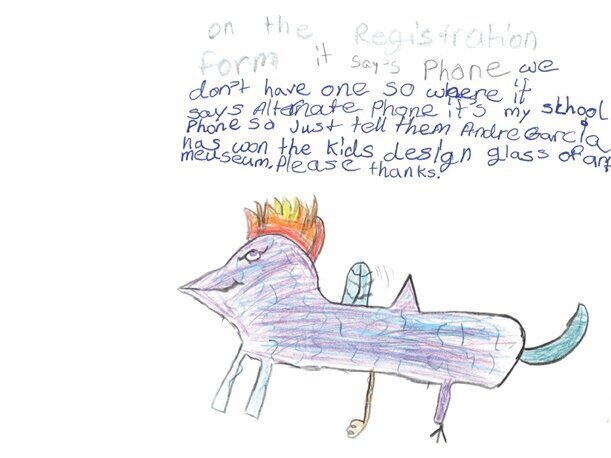 on the Registration
form it say's Phone we
don't have one so where if
says Alternate Phone it's my skhool
Phone so Just tell them Andre Garcia
has won the kids design glass of art
meuseum. Please thanks.